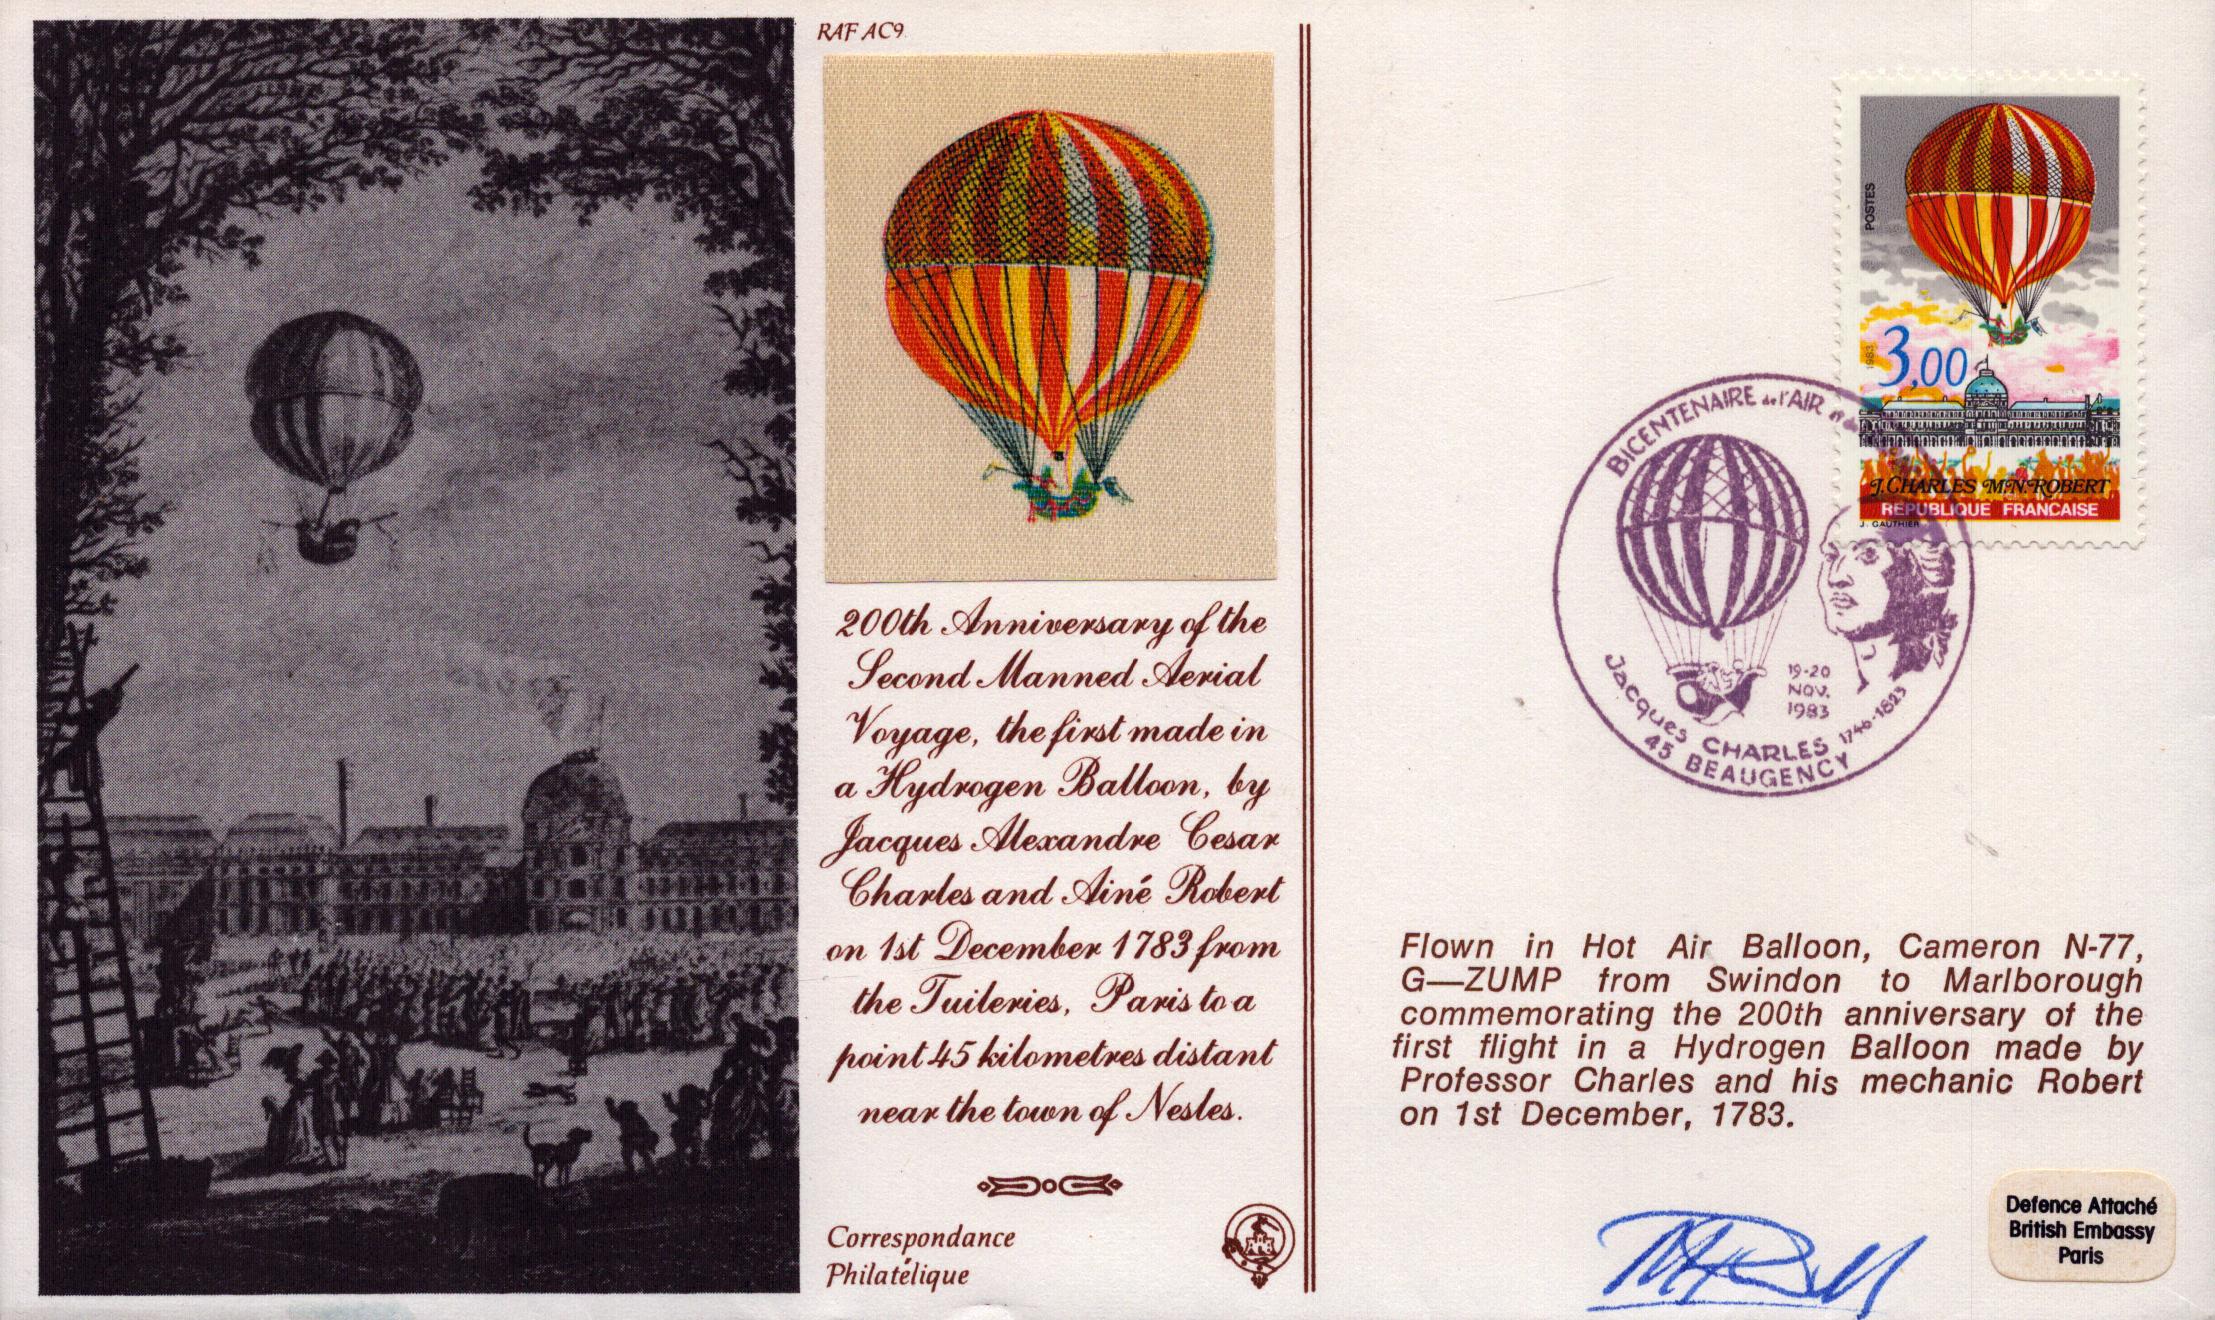 RAF AC9
200th Anniversary of the
Second Manned Aerial
Voyage, the first made in
a Hydrogen Balloon, by
Jacques Alexandre Cesar
Charles and Ainé Robert
on 1st December 1783 from
the Tuileries, Paris to a
point 45 kilometres distant
near the town of Nesles.
Correspondance
Philatélique
POSTES
1983
3,00
J. CHARLES M.N. ROBERT
REPUBLIQUE FRANCAISE
J. GAUTHIER
BICENTENAIRE de l'AIR et de
19-20
NOV.
1983
Jacques CHARLES 1746-1823
45 BEAUGENCY
Flown in Hot Air Balloon, Cameron N-77,
G—ZUMP from Swindon to Marlborough
commemorating the 200th anniversary of the
first flight in a Hydrogen Balloon made by
Professor Charles and his mechanic Robert
on 1st December, 1783.
Defence Attaché
British Embassy
Paris